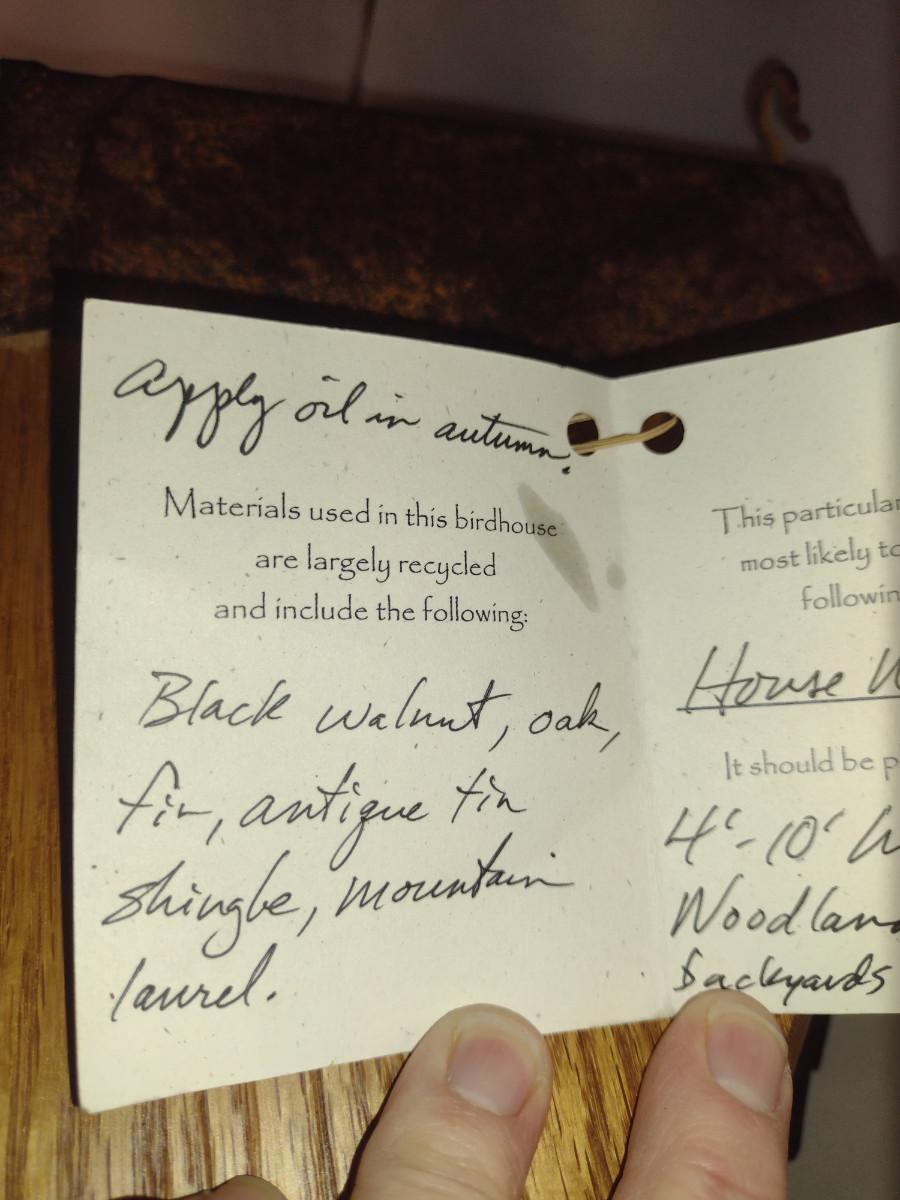 Apply oil in autumn.
Materials used in this birdhouse
are largely recycled
and include the following:
Black walnut, oak,
fir, antique tin
shingle, mountain
laurel.
This particular
most likely to
House
It should be
4'-10'
backyards